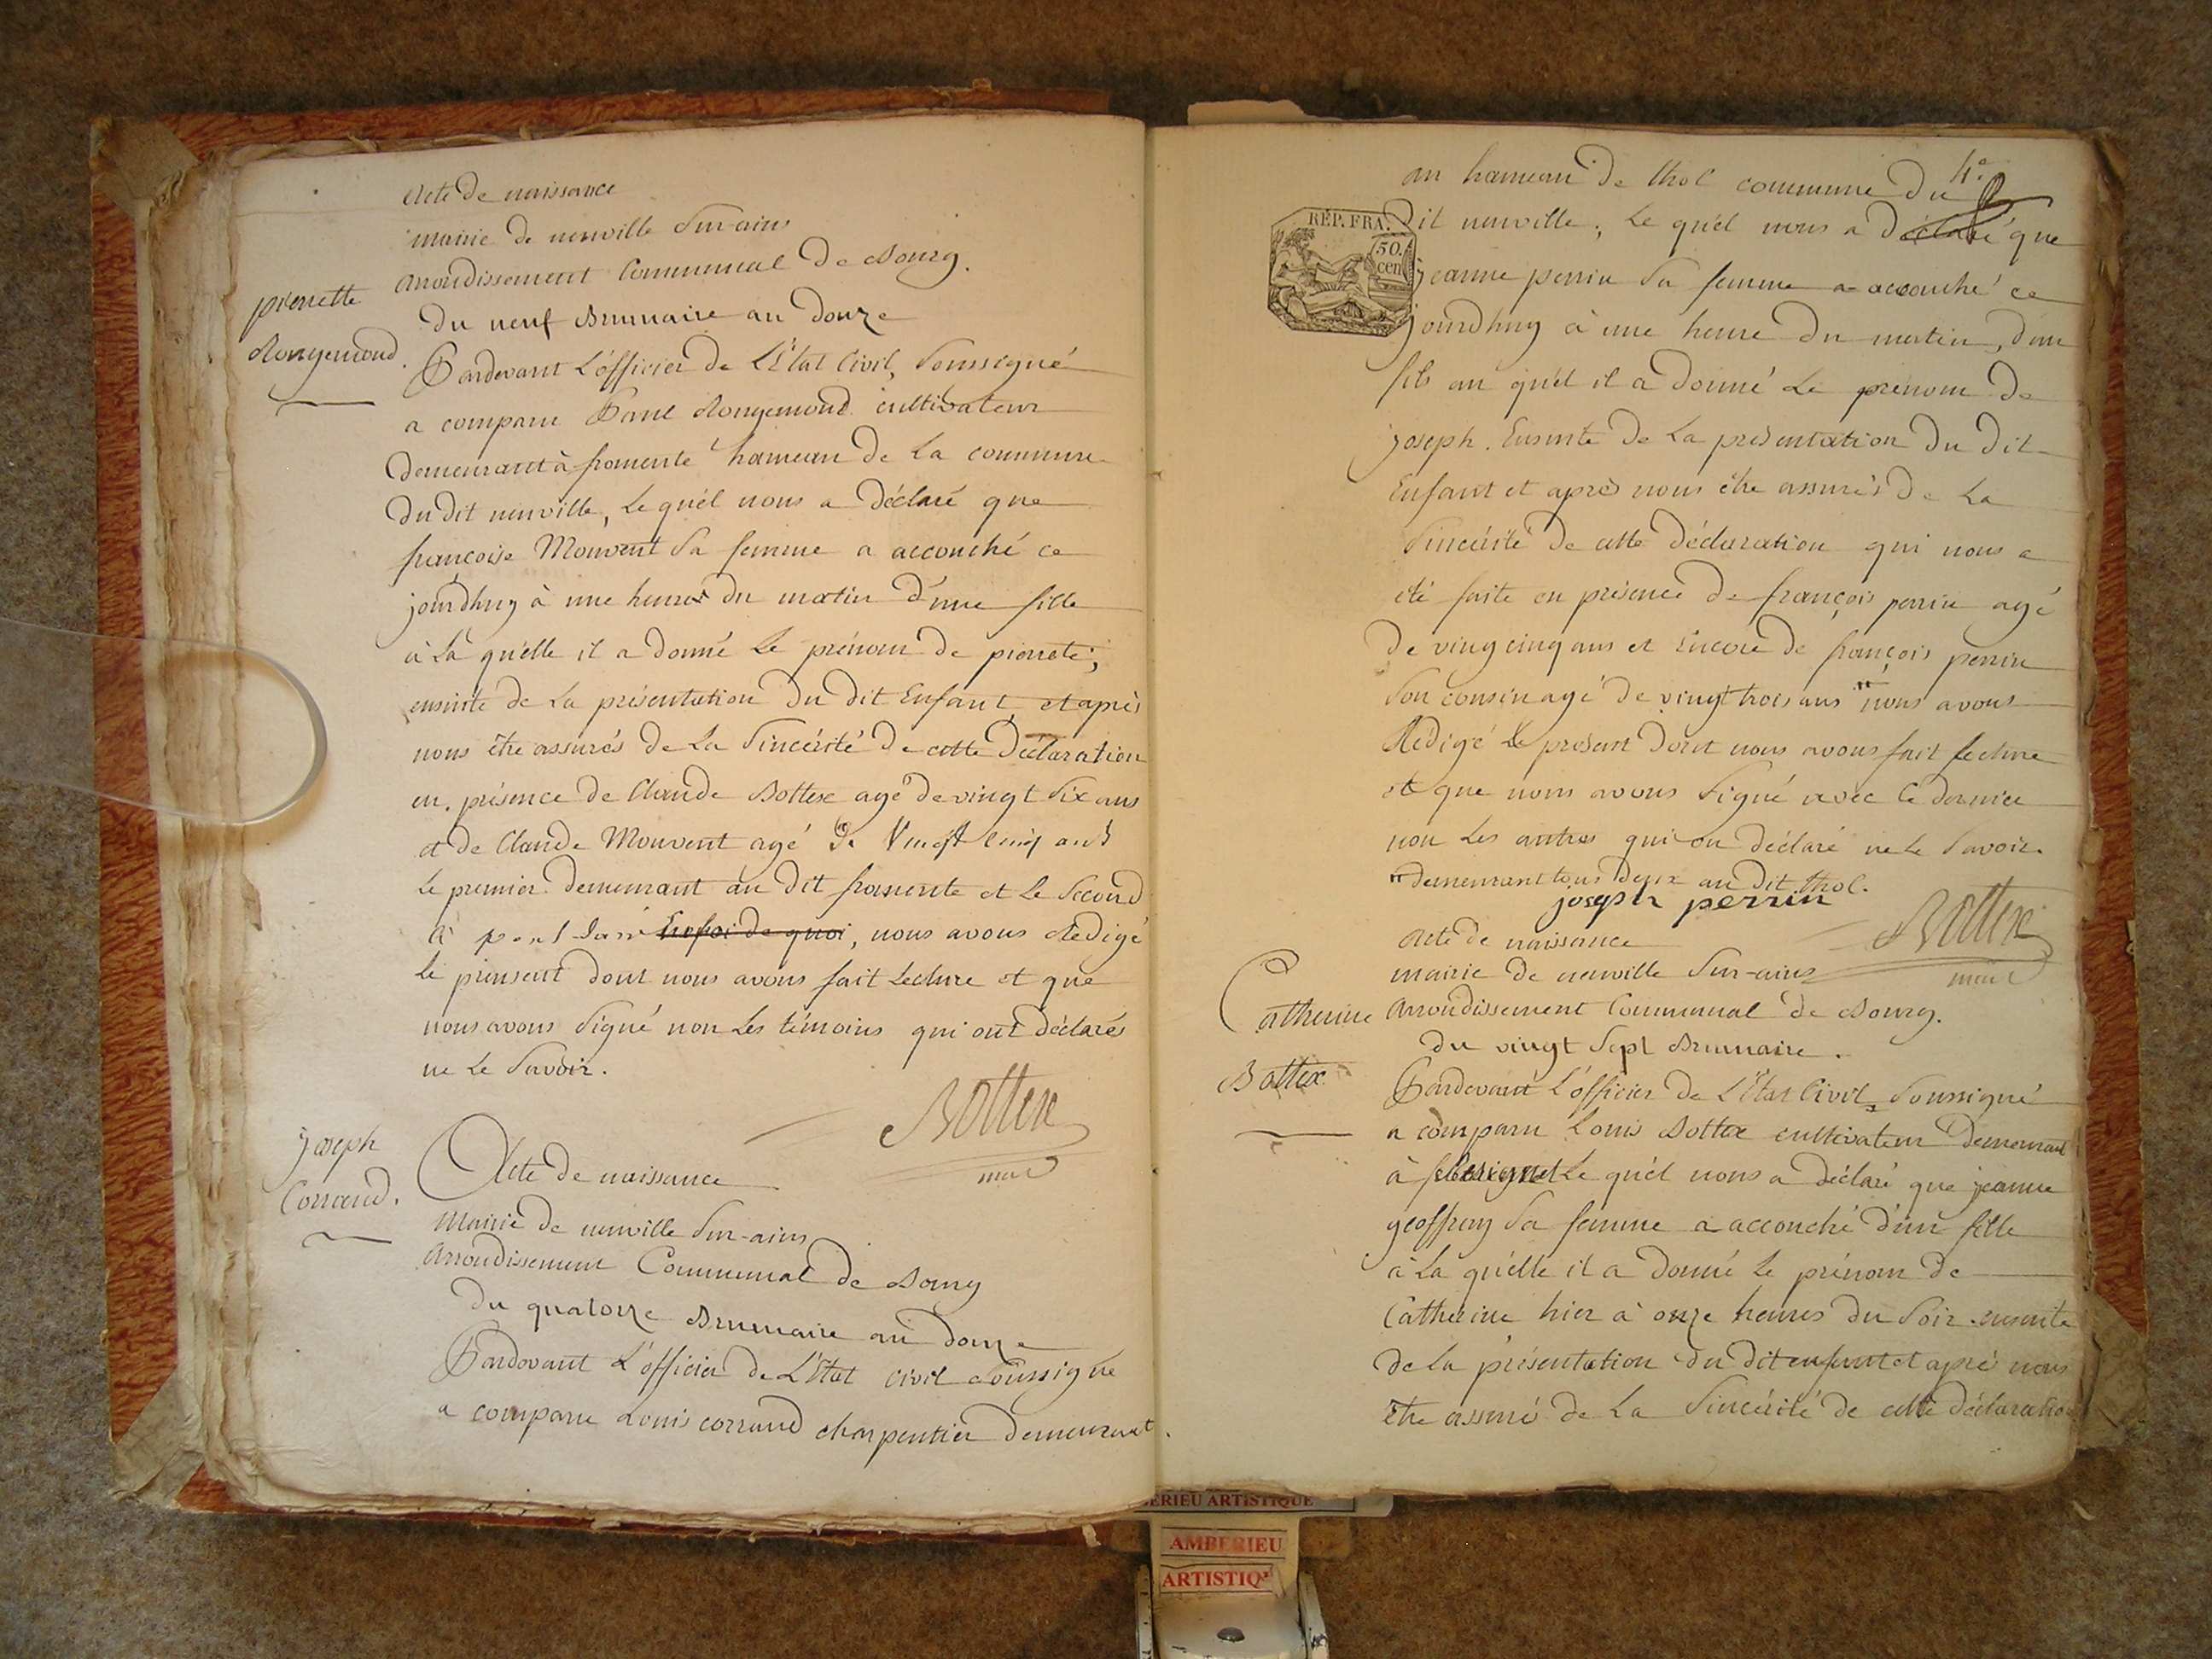 acte de naissance
mairie de neuville Sur-ains
arrondissement Communal de Bourg.
du neuf Brumaire an douze
pierrette
Rongemond.
Pardevant L'officier de L'Etat Civil, Soussigné
a comparu Paul Rongemond cultivateur
demeurant à fromente hameau de La commune
du dit neuville, Le quel nous a déclaré que
françoise Mouvent Sa femme a accouché ce
jourdhuy à une heure du matin d'une fille
à La quélle il a donné Le prénom de pierrete;
ensuite de La présentation du dit Enfant et après
nous être assurés de La Sincérité de cette déclaration
en présence de Claude Bottex agé de vingt Six ans
et de Claude Mouvent agé de Vingt Cinq ans
Le premier demeurant au dit fromente et Le Second
à pont dain En foi de quoi, nous avons Redigé
Le present dont nous avons fait Lecture et que
nous avons Signé non Les témoins qui ont déclarés
ne Le Savoir.
Bottex
maire
joseph
Corraud.
Acte de naissance
Mairie de neuville Sur-ains
arrondissement Communal de Bourg
du quatorze Brumaire an douze
Pardevant L'officier de L'Etat civil Soussigné
a comparu Louis corraud charpentier demeurant
4e
au hameau de thol commune du
RÉP. FRA.
50.
cen
dit neuville; Le quél nous a déclaré que
jeanne perrin Sa femme a accouché ce
jourdhuy à une heure du matin, d'un
fils au quél il a donné Le prénom de
joseph. Ensuite de La présentation du dit
Enfant et après nous être assurés de La
Sincérité de cette déclaration qui nous a
été faite en présence de françois perrin agé
de vingcinq ans et Encore de françois perrin
Son cousin agé de vingt trois ans nous avons
Redigé Le present dont nous avons fait Lecture
et que nous avons Signé avec Le dernier
non Les autres qui on déclaré ne Le Savoir.
demeurant tous deux au dit thol.
joseph perrin
Bottex
maire
acte de naissance
mairie de neuville Sur-ains
arrondissement Communal de Bourg.
du vingt Sept Brumaire.
Catherine
Bottex
Pardevant L'officier de L'Etat Civil Soussigné
a comparu Louis Bottex cultivateur demeurant
à Le quél nous a déclaré que jeanne
geoffray Sa femme a accouché d'une fille
à La quélle il a donné Le prénom de
Catherine hier à onze heures du Soir. ensuite
de La présentation du dit enfant et après nous
être assuré de La Sincérité de cette déclaration
ERIEU ARTISTIQUE
AMBERIEU
ARTISTIQ